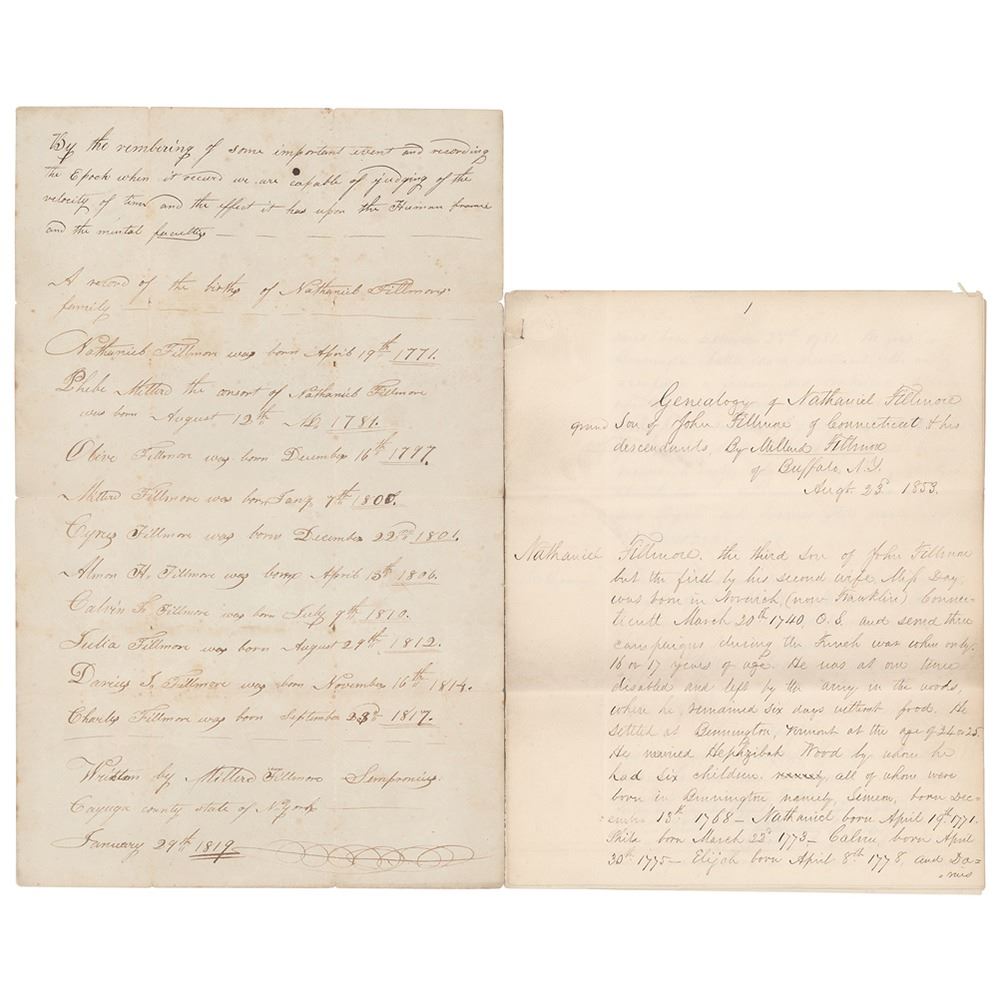 By the rembering of some important event and recording
the Epoch when it occurd we are capable of judging of the
velocity of time and the effect it has upon the Human frame
and the mental faculties
A record of the births of Nathaniel Fillmores
family
Nathaniel Fillmore was born April 19th 1771.
Phebe Millerd the consort of Nathaniel Fillmore
was born August 12th 1781.
Olive Fillmore was born December 16th 1797.
Millerd Fillmore was born Jany 7th 1800.
Cyrus Fillmore was born December 22nd 1801.
Almon H. Fillmore was born April 13th 1806.
Calvin T. Fillmore was born July 9th 1810.
Julia Fillmore was born August 29th 1812.
Darius I. Fillmore was born November 16th 1814.
Charles Fillmore was born September 23d 1817.
Written by Millerd Fillmore Sempronius
Cayuga county state of N.york
January 29th 1819.
1
Genealogy of Nathaniel Fillmore
grand Son of John Fillmore of Connecticut & his
descendants, By Millard Fillmore
of Buffalo, N.Y.
Augt. 23d 1853.
Nathaniel Fillmore, the third son of John Fillmore
but the first by his second wife, Miss Day,
was born in Norwich, (now Franklin) Connec-
ticutt March 20th 1740, O.S. and served three
campaigns during the French war when only
16 or 17 years of age. He was at one time
disabled and left by the army in the woods,
where he remained six days without food. He
settled at Bennington, Vermont at the age of 24 or 25.
He married Hepzibah Wood by whom he
had six children. all of whom were
born in Bennington namely, Simeon, born Dec-
ember 13th 1768 — Nathaniel born April 19th 1771.
Phila born March 23d 1773 — Calvin, born April
30th 1775 — Elijah born April 8th 1778, and Da=
=rius